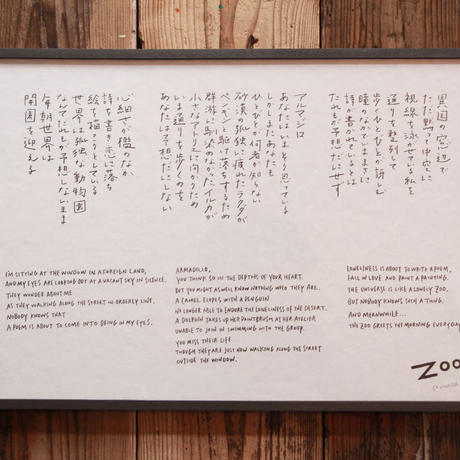 異国の窓辺で
ただ黙って中空に
視線を泳がせている私を
通りを整列して
歩くひとびとが訝しむ
瞳のなかでいままさに
詩が書かれていることは
だれもが予想だにせず
アルマジロ
あなたはいまそう思っている
しかしまたあなたも
ひとびとが何者か知らない
砂漠の孤独に疲れたラクダが
ペンギンと駆け落ちするため
群游に馴染めなかったイルカが
小さなアトリエに向かうため
いま通りを歩くのを
あなたは予想だにしない
心細さが檻のなか
詩を書き恋に落ち
絵を描こうとしている
世界は孤独な動物園
なんてだれも予想しないまま
毎朝世界は
開園を迎える
I'M SITTING AT THE WINDOW IN A FOREIGN LAND,
AND MY EYES ARE LOOKING OUT AT A VACANT SKY IN SILENCE.
THEY WONDER ABOUT ME
AS THEY WALKING ALONG THE STREET IN ORDERLY LINE,
NOBODY KNOWS THAT
A POEM IS ABOUT TO COME INTO BEING IN MY EYES.
ARMADILLO,
YOU THINK SO IN THE DEPTHS OF YOUR HEART.
BUT YOU MIGHT AS WELL KNOW NOTHING WHO THEY ARE.
A CAMEL ELOPES WITH A PENGUIN
NO LONGER ABLE TO ENDURE THE LONELINESS OF THE DESERT.
A DOLPHIN TAKES UP HER PAINTBRUSH AT HER ATELIER
UNABLE TO JOIN IN SWIMMING WITH THE GROUP.
YOU MISS THEIR LIFE
THOUGH THEY ARE JUST NOW WALKING ALONG THE STREET
OUTSIDE THE WINDOW.
LONELINESS IS ABOUT TO WRITE A POEM,
FALL IN LOVE AND PAINT A PAINTING.
THE UNIVERSE IS LIKE A LONELY ZOO,
BUT NOBODY KNOWS SUCH A THING.
AND MEANWHILE...
THE ZOO GREETS THE MORNING EVERYWHERE
ZOO